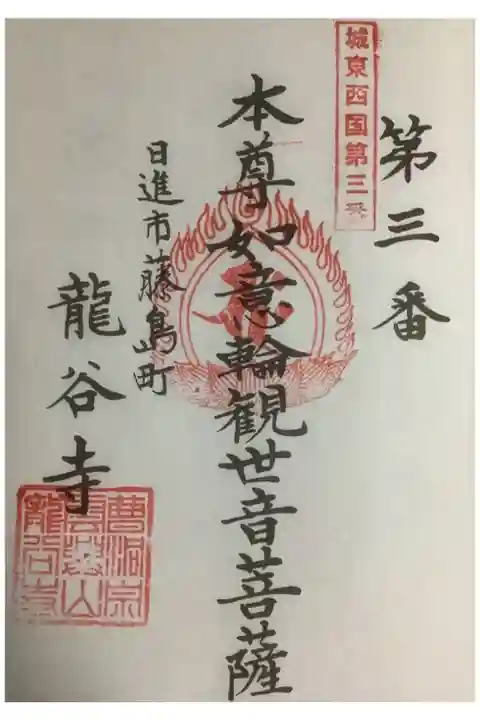 城東西国第三番
第三番
本尊如意輪観世音菩薩
日進市藤島町
龍谷寺
曹洞宗
山
龍谷寺